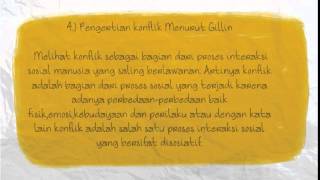 4.) Pengertian konflik Menurut Gillin
Melihat konflik sebagai bagian dari proses interaksi
sosial manusia yang saling berlawanan. Artinya konflik
adalah bagian dari proses sosial yang terjadi karena
adanya perbedaan-perbedaan baik
fisik,emosi,kebudayaan dan perilaku atau dengan kata
lain konflik adalah salah satu proses interaksi sosial
yang bersifat disosiatif.